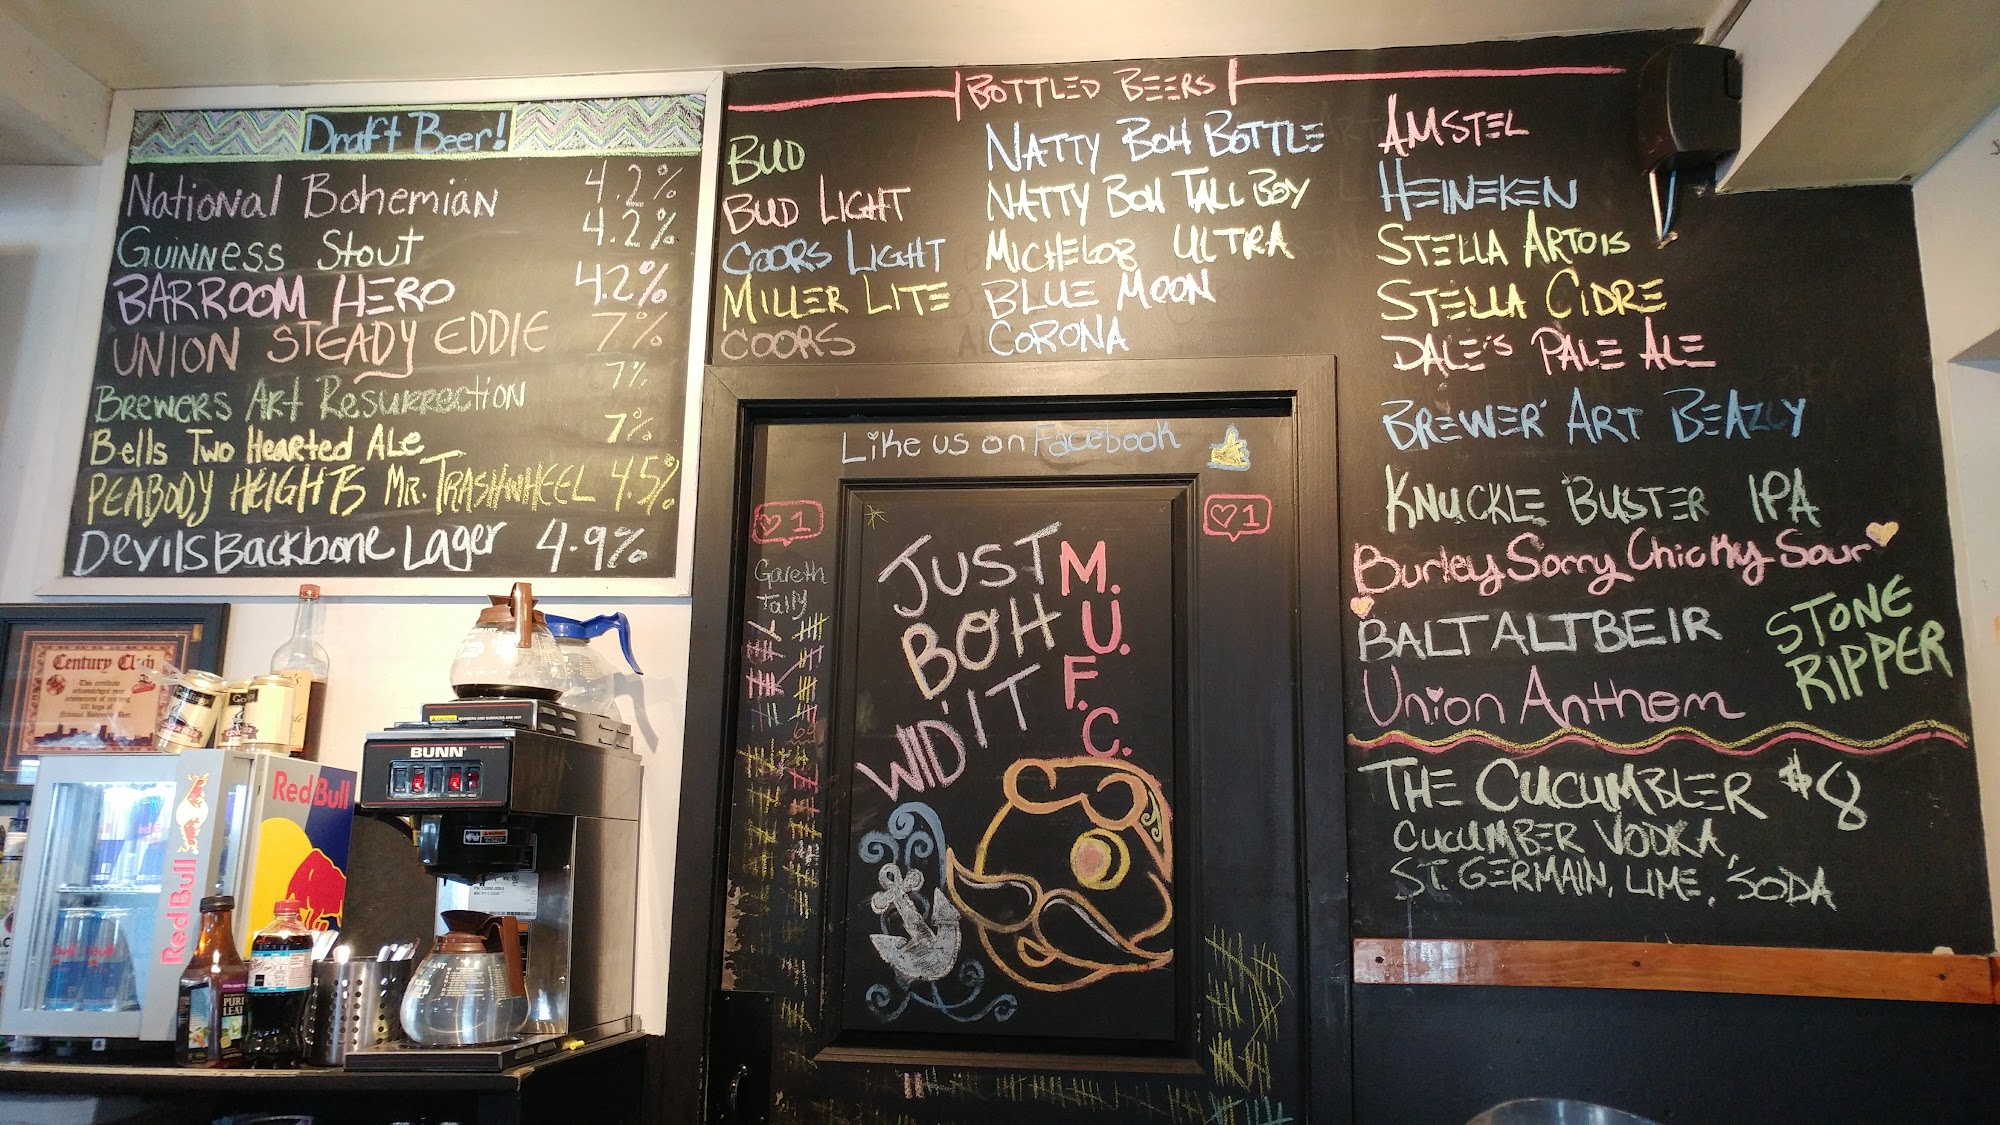 Draft Beer!
National Bohemian 4.2%
Guinness Stout 4.2%
BARROOM HERO 4.2%
UNION STEADY EDDIE 7%
Brewers Art Resurrection 7%
Bells Two Hearted Ale 7%
PEABODY HEIGHTS MR. TRASHWHEEL 4.5%
Devils Backbone Lager 4.9%
BOTTLED BEERS
BUD
BUD LIGHT
COORS LIGHT
MILLER LITE
COORS
NATTY BOH BOTTLE
NATTY BOH TALL BOY
MICHELOB ULTRA
BLUE MOON
CORONA
AMSTEL
HEINEKEN
STELLA ARTOIS
STELLA CIDRE
DALE'S PALE ALE
BREWER' ART BEAZLY
KNUCKLE BUSTER IPA
Burley Sorry Chicky Sour
BALT ALTBEIR
STONE
RIPPER
Union Anthem
THE CUCUMBLER $8
CUCUMBER VODKA,
ST. GERMAIN, LIME, SODA
Like us on Facebook
1
1
Gareth
Tally
69
JUST
BOH
WID IT
M.
U.
F.
C.
Century Club
This certificate
acknowledges your
National Bohemian Beer.
BUNN
Red Bull
Red Bull
PURE
LEAF